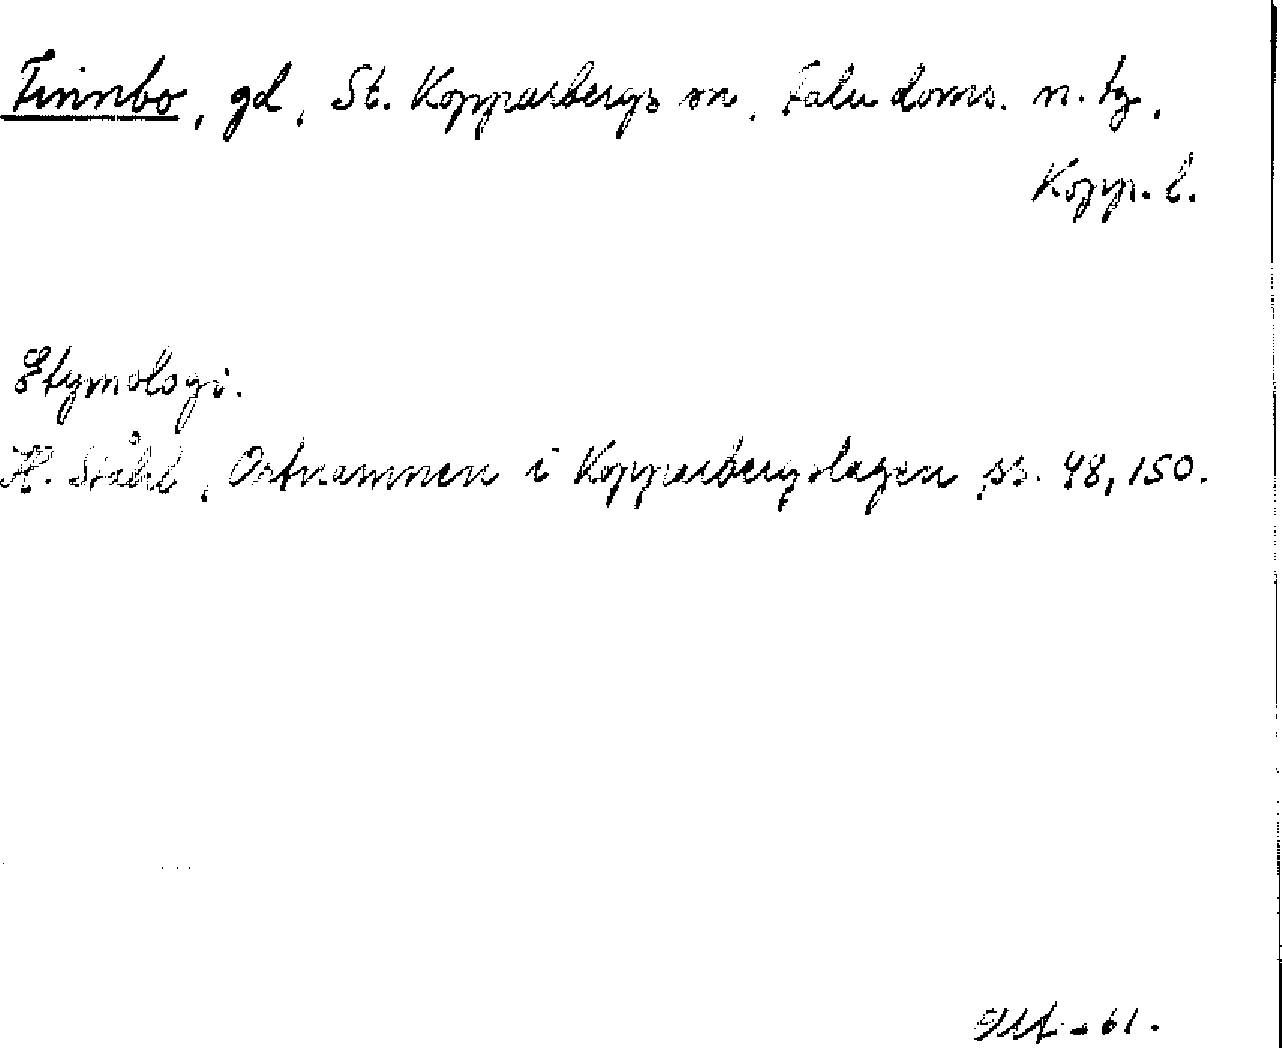 Finnbo, gd, St. Kopparbergs sn, Falu doms. n. tg,
Kopp. l.
Etymologi.
H. Ståhl, Ortnamnen i Kopparbergslagen, ss. 48, 150.
-61.